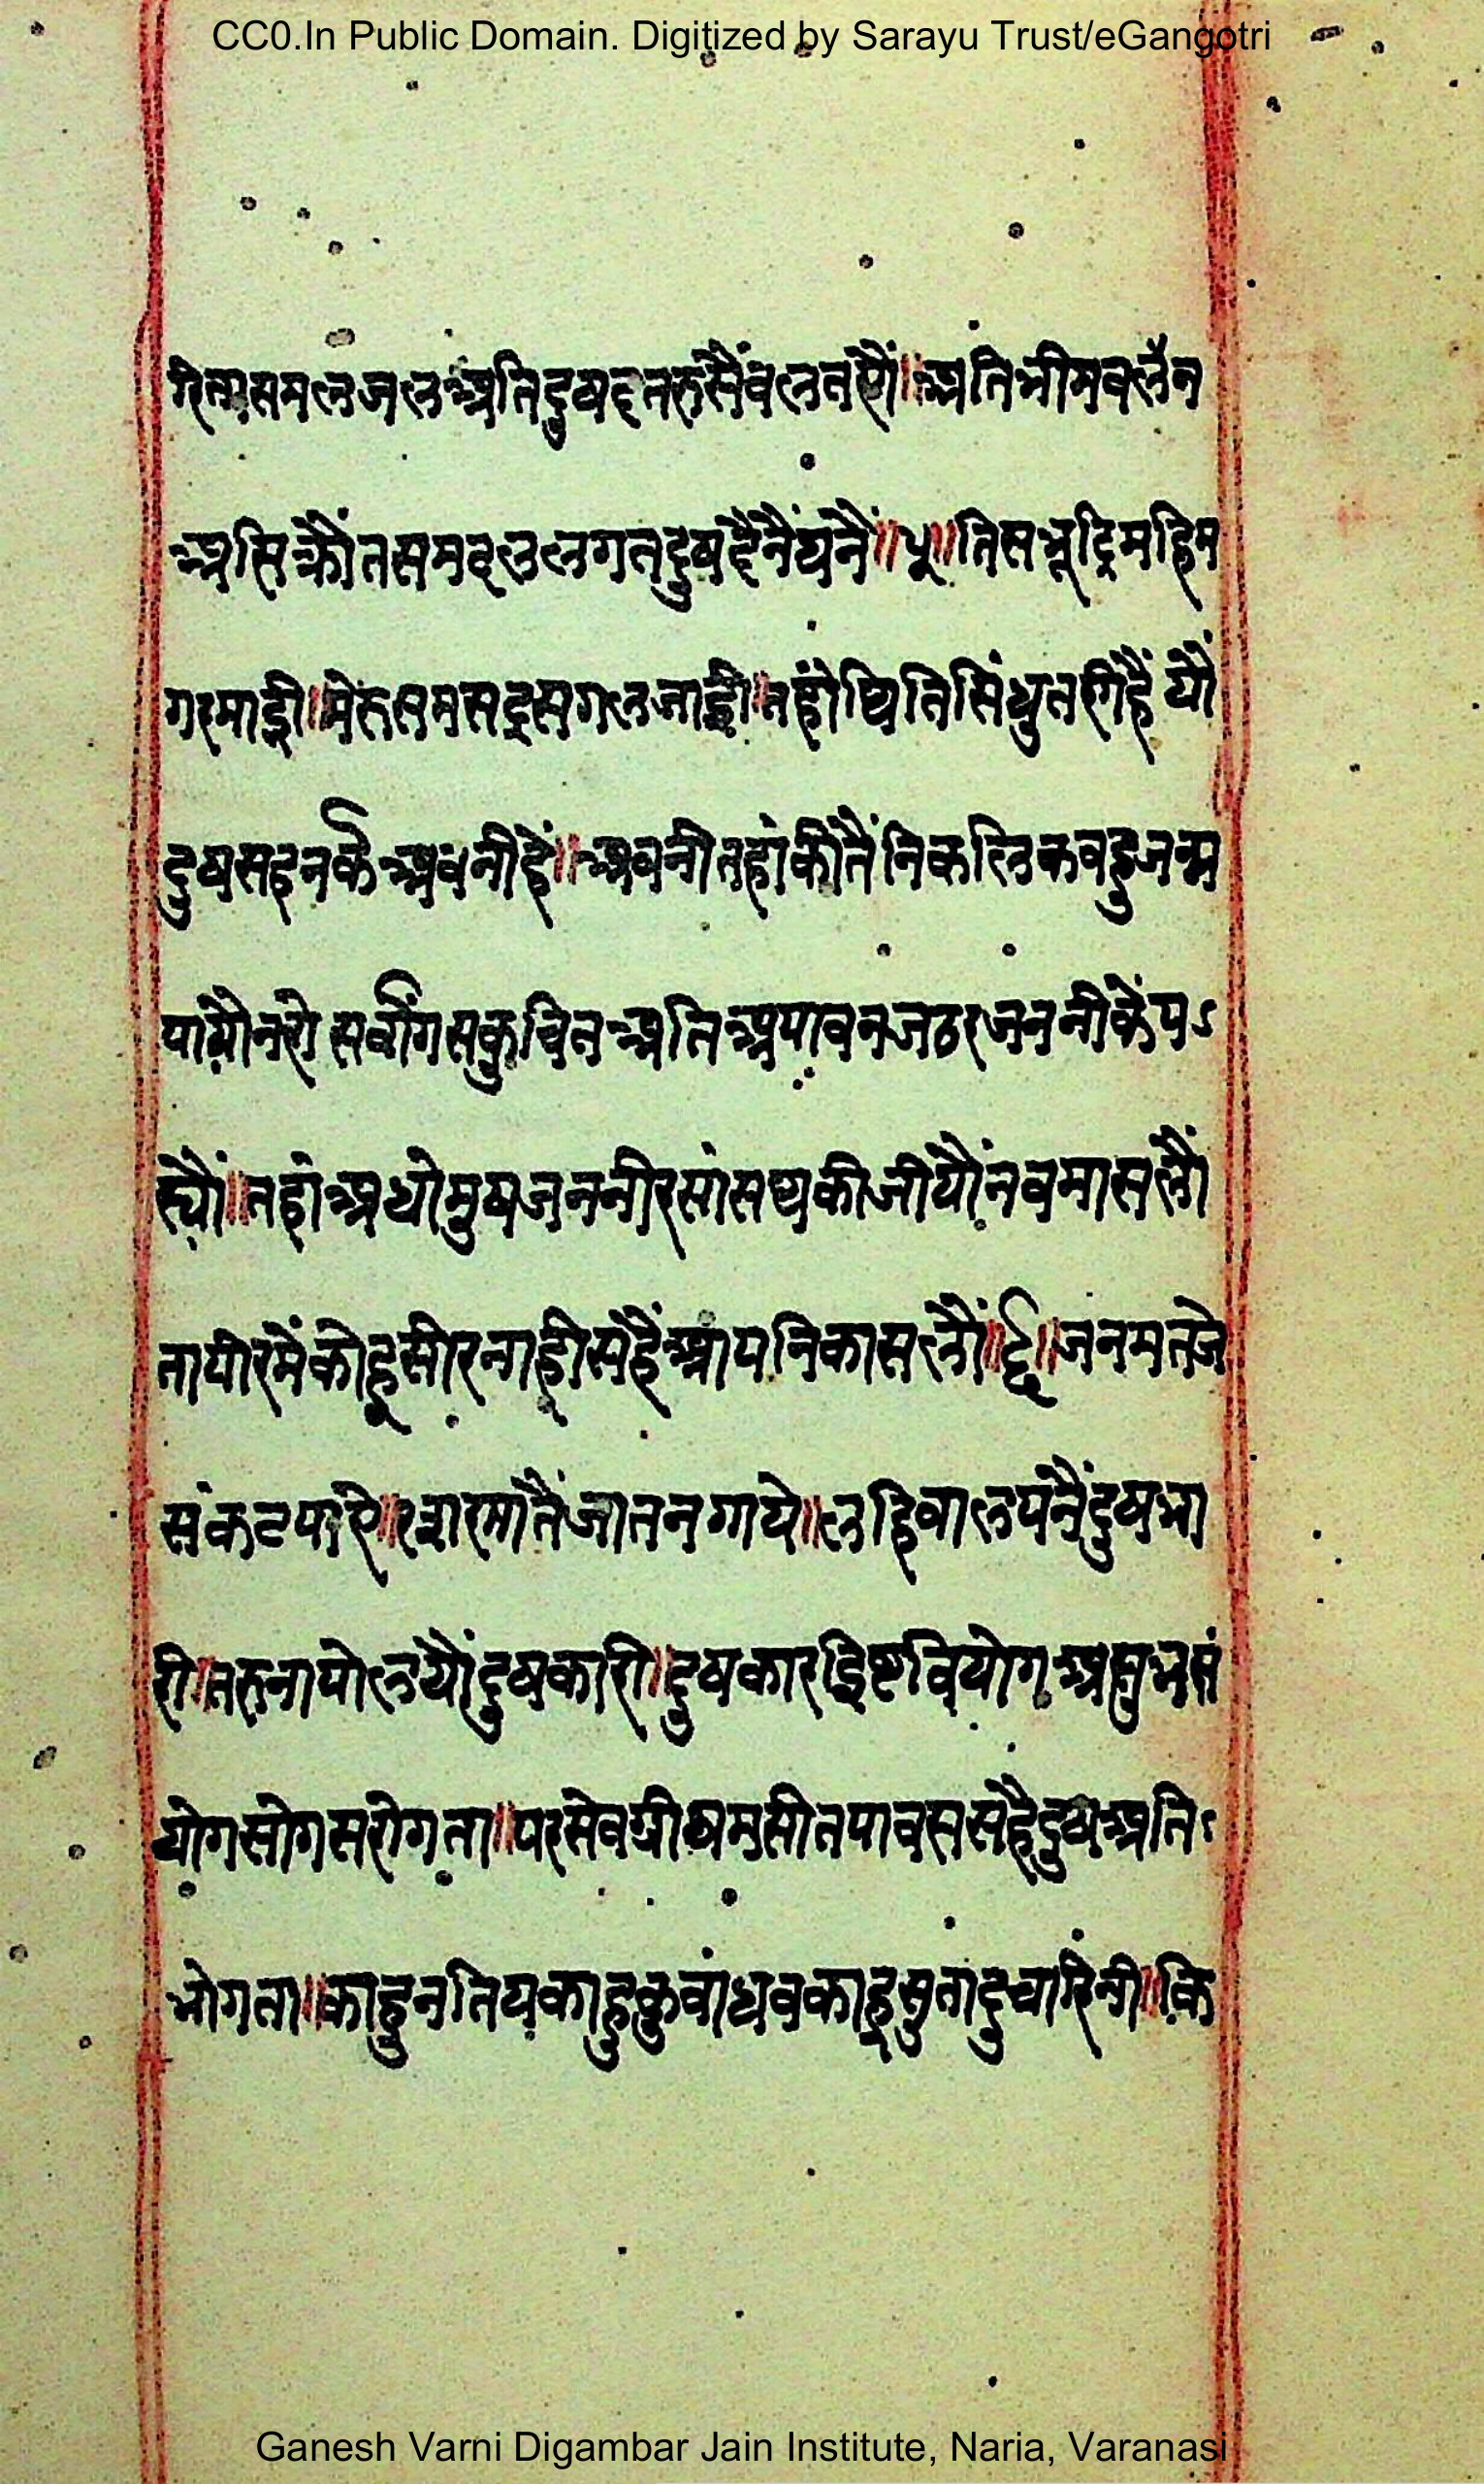 CC0.In Public Domain. Digitized by Sarayu Trust/eGangotri
समलजलअतिदुषदतरुसैंवलतसौं॥अतिभीमवलैन
असिक्रौंतसमदलुलगतदुषदैनैंघनैं॥५॥तिसभूदिमहिम
गरमाही॥मेरुसमसद्रसगलजाही॥तहांथितिसिंधुतरगिहैंयौं
दुषसदनर्केअवनीहैं॥अवनीतहांकीतैंनिकलिकवहुजन्म
पायौनरो सर्वांगसकुचितअतिअपावनजठरजननीकेंपऽ
र्यौं॥तहांअधोमुषजननीरसांसथकीजीयौंनवमासलौं
तापीरमैंकोहूसीरनाहीसहैंआपनिकासलौं॥६॥जनमतजे
संकटपाए॥रसारमातैंजातनगाये॥लहिवालपनैंदुषभा
री॥तरुनापोलयौंदुषकारी॥दुषकारइिष्टवियोगअसुभसं
योगसोगसरोगता॥परसेवग्रीषमसीतपावससहैदुषअतिऽ
भोगता॥काहुनतियकाहुकुवांधवकाहूसुतादुचारिनी॥कि
Ganesh Varni Digambar Jain Institute, Naria, Varanasi